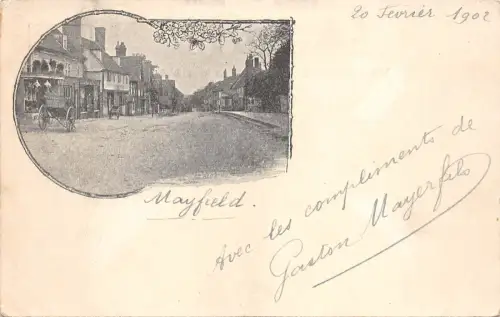 20 Fevrier 1902
Mayfield.
Avec les compliments de
Gaston Mayer fils